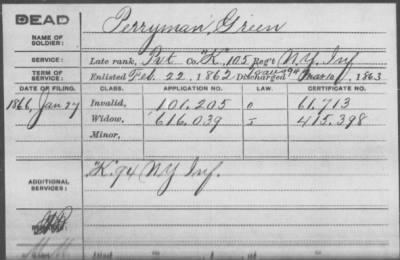 DEAD
NAME OF SOLDIER: Perryman, Green
SERVICE: Late rank, Pvt Co. "K", 105 Reg't N.Y. Inf
TERM OF SERVICE: Enlisted Feb. 22, 1862 Discharged Mar 10, 1863
DATE OF FILING. CLASS. APPLICATION NO. LAW. CERTIFICATE NO.
1866, Jan 27 Invalid, 101.205 61.713
Widow, 616.039 415.398
Minor,
ADDITIONAL SERVICES: "K" 94 N.Y. Inf.